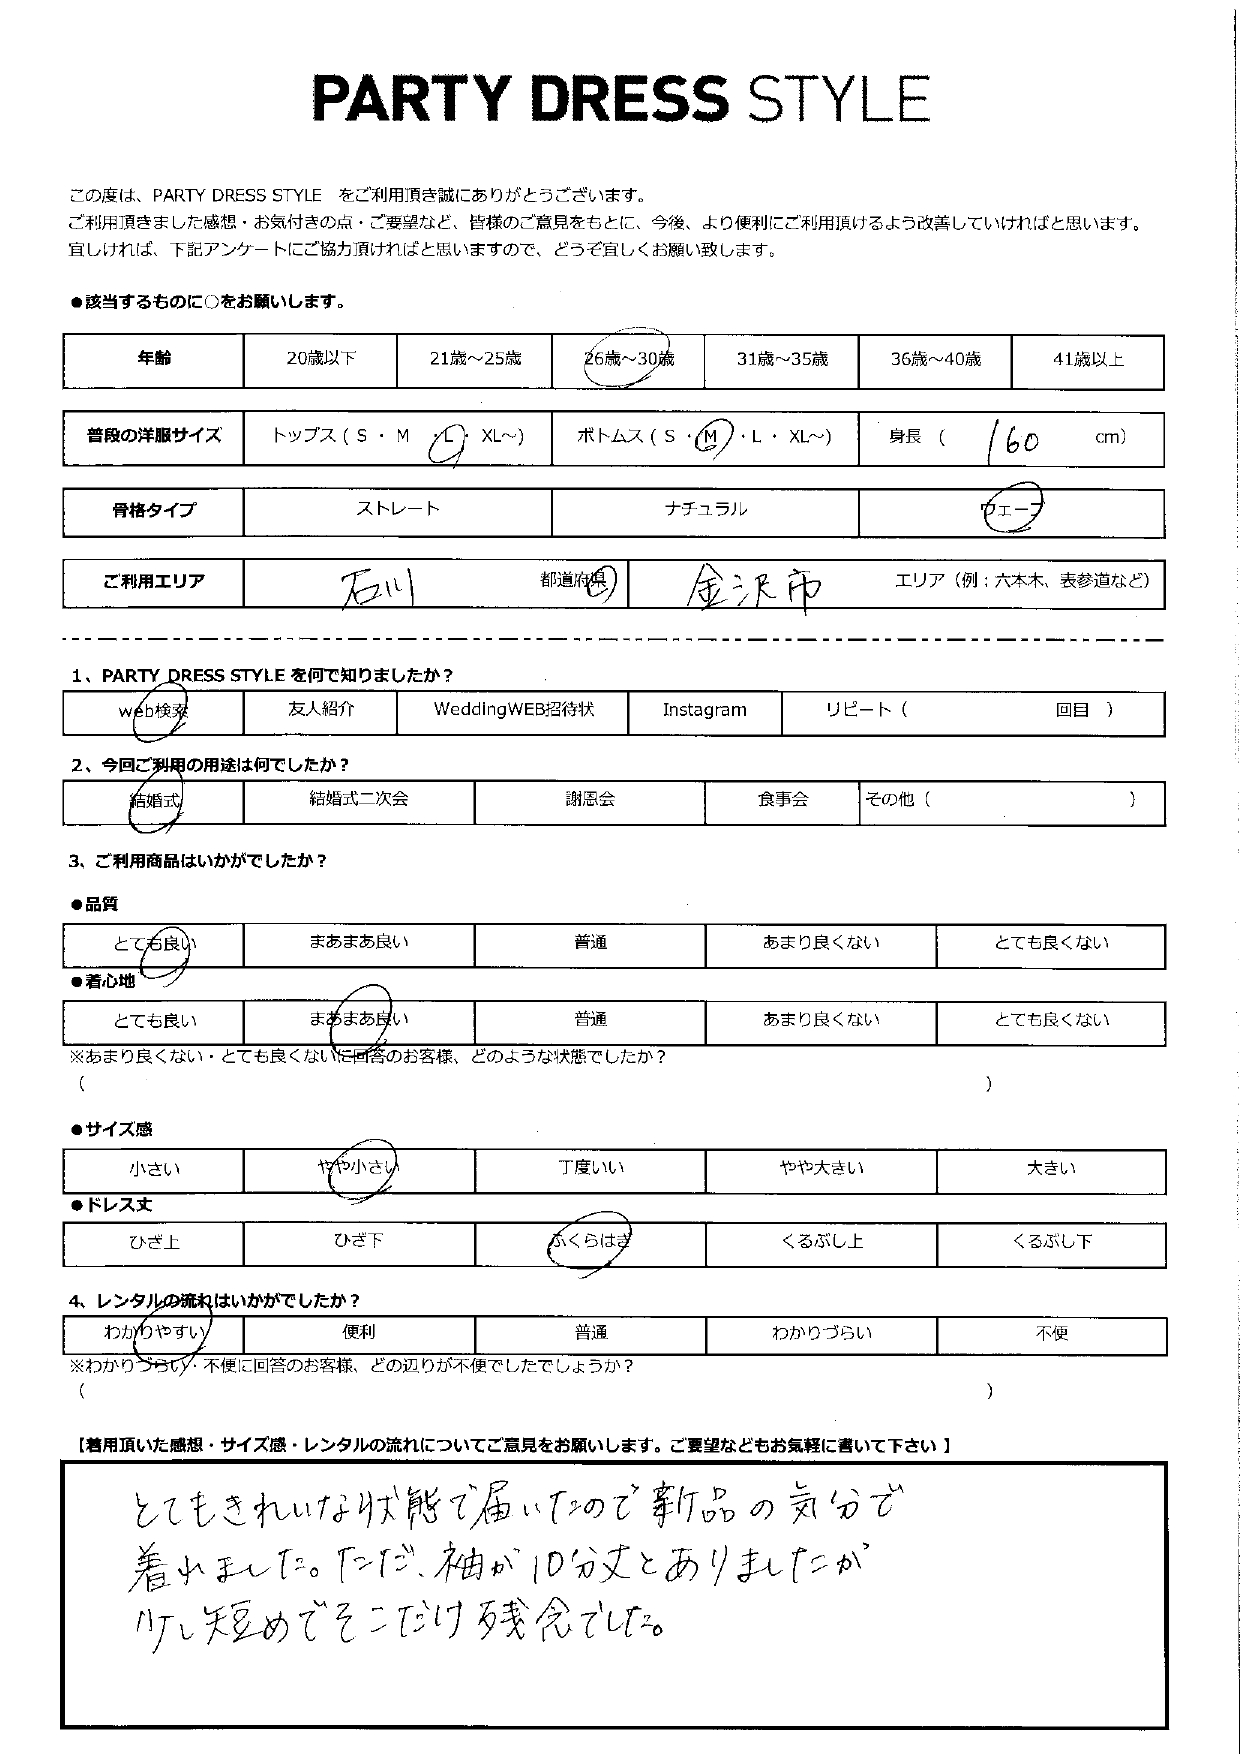 PARTY DRESS STYLE
この度は、PARTY DRESS STYLE をご利用頂き誠にありがとうございます。
ご利用頂きました感想・お気付きの点・ご要望など、皆様のご意見をもとに、今後、より便利にご利用頂けるよう改善していければと思います。
宜しければ、下記アンケートにご協力頂ければと思いますので、どうぞ宜しくお願い致します。
●該当するものに○をお願いします。
年齢 20歳以下 21歳～25歳 26歳～30歳 31歳～35歳 36歳～40歳 41歳以上
普段の洋服サイズ トップス ( S ・ M ・L・ XL～) ボトムス ( S ・ M ・L ・ XL～) 身長 ( 160 cm)
骨格タイプ ストレート ナチュラル ウェーブ
ご利用エリア 石川 都道府県 金沢市 エリア（例；六本木、表参道など）
1、PARTY DRESS STYLE を何で知りましたか？
web検索 友人紹介 WeddingWEB招待状 Instagram リピート（ 回目 ）
2、今回ご利用の用途は何でしたか？
結婚式 結婚式二次会 謝恩会 食事会 その他（ ）
3、ご利用商品はいかがでしたか？
●品質
とても良い まあまあ良い 普通 あまり良くない とても良くない
●着心地
とても良い まあまあ良い 普通 あまり良くない とても良くない
※あまり良くない・とても良くないに回答のお客様、どのような状態でしたか？
（ ）
●サイズ感
小さい やや小さい 丁度いい やや大きい 大きい
●ドレス丈
ひざ上 ひざ下 ふくらはぎ くるぶし上 くるぶし下
4、レンタルの流れはいかがでしたか？
わかりやすい 便利 普通 わかりづらい 不便
※わかりづらい・不便に回答のお客様、どの辺りが不便でしたでしょうか？
（ ）
【着用頂いた感想・サイズ感・レンタルの流れについてご意見をお願いします。ご要望などもお気軽に書いて下さい 】
とてもきれいな状態で届いたので新品の気分で
着れました。ただ、袖が10分丈とありましたが
少し短めでそこだけ残念でした。